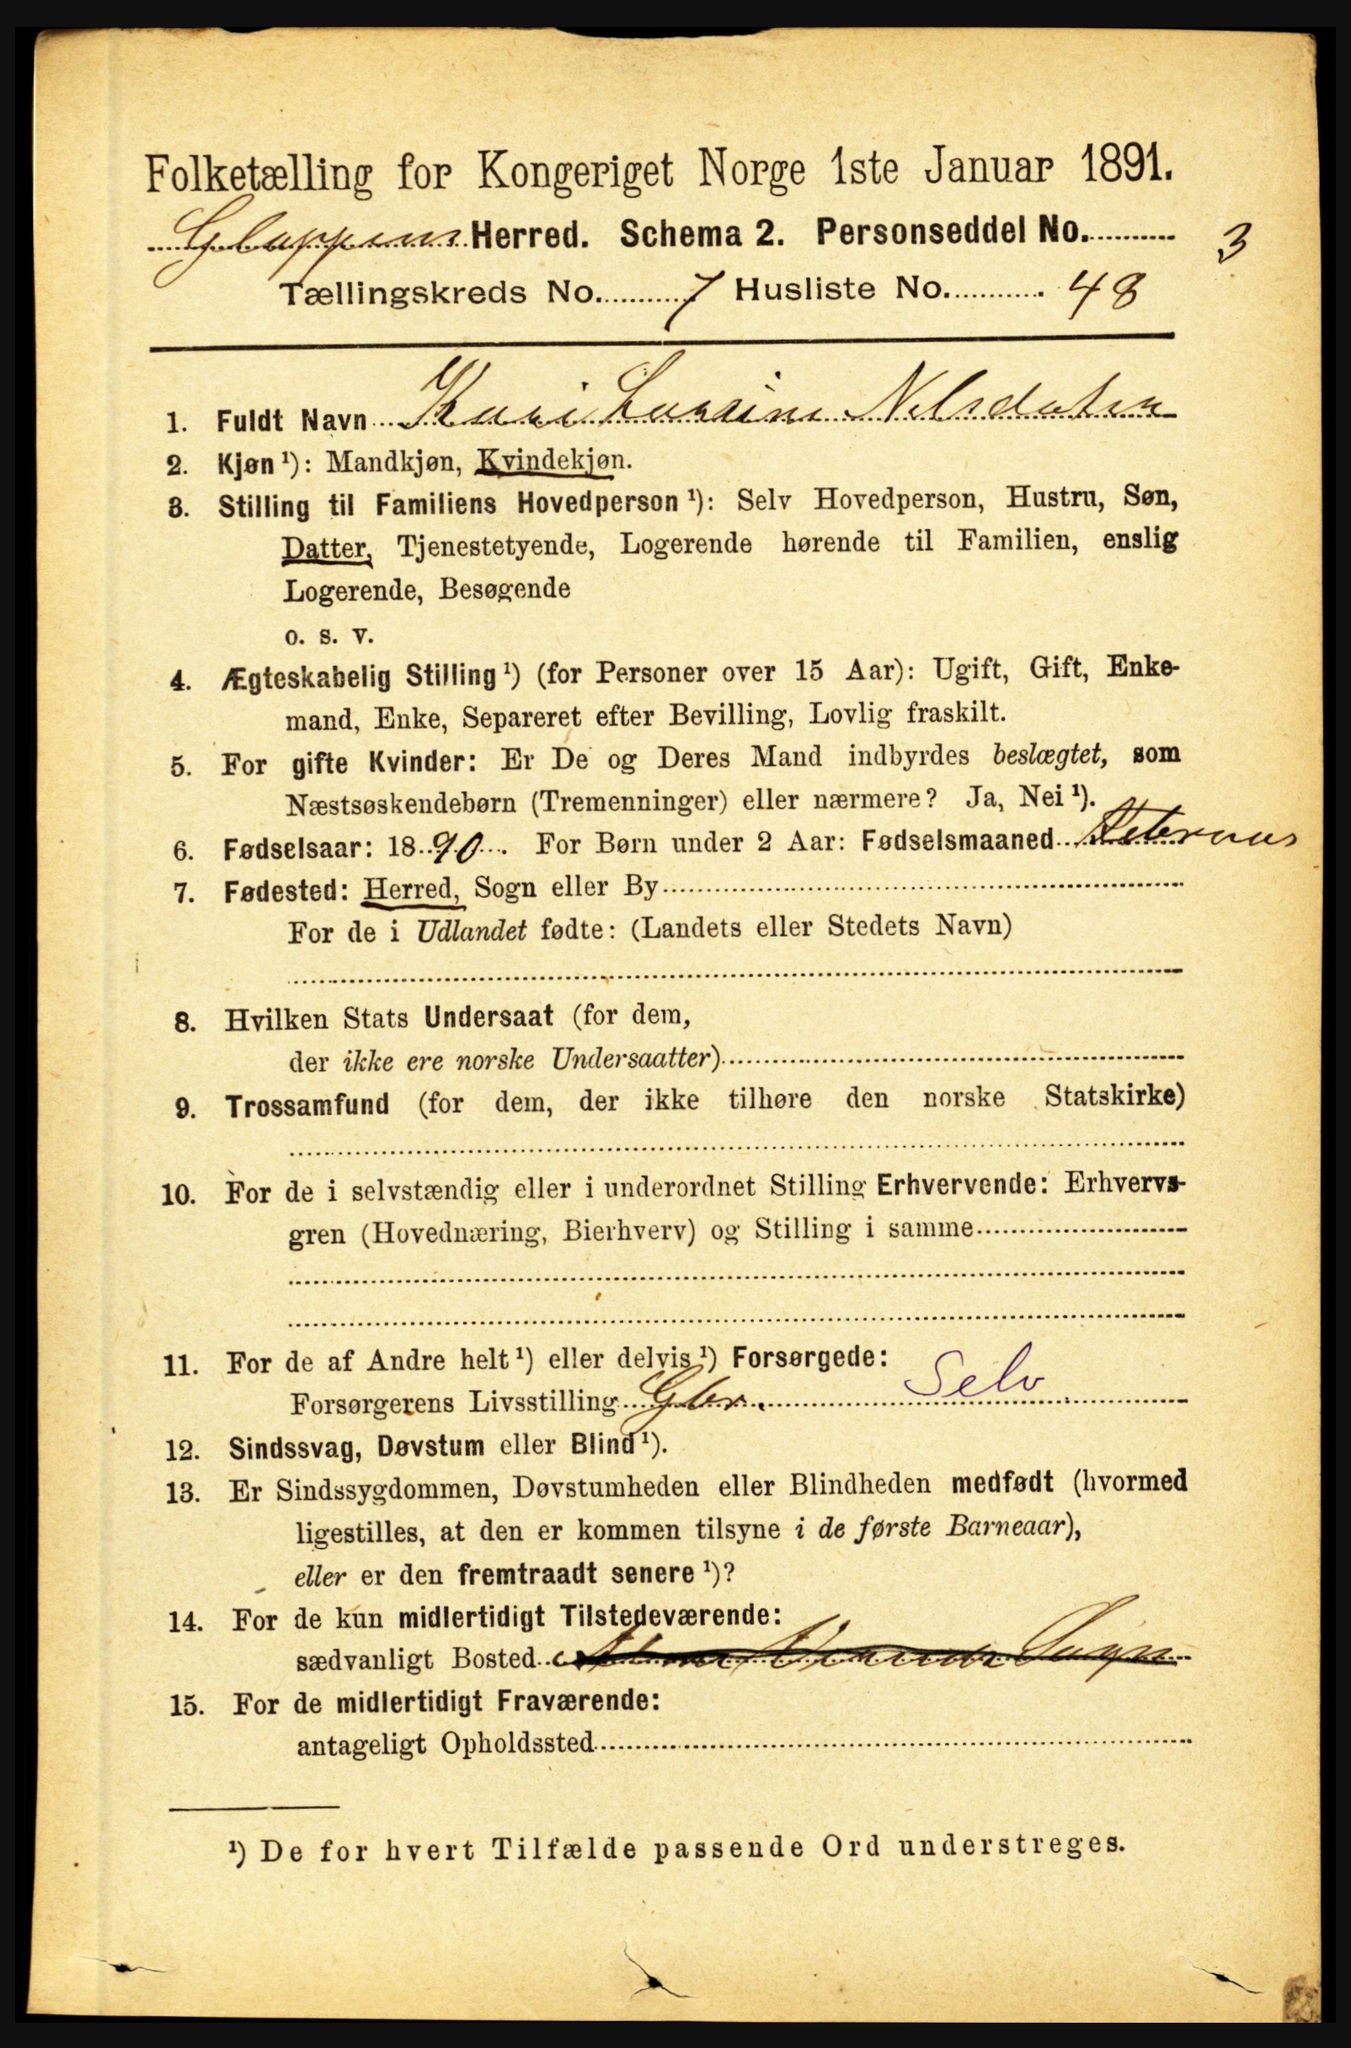 Folketælling for Kongeriget Norge 1ste Januar 1891.
Gloppens Herred. Schema 2. Personseddel No. 3
Tællingskreds No. 7 Husliste No. 48
1. Fuldt Navn Kari Larsine Nilsdatter
2. Kjøn¹): Mandkjøn, Kvindekjøn.
3. Stilling til Familiens Hovedperson¹): Selv Hovedperson, Hustru, Søn,
Datter, Tjenestetyende, Logerende hørende til Familien, enslig
Logerende, Besøgende
o. s. v.
4. Ægteskabelig Stilling¹) (for Personer over 15 Aar): Ugift, Gift, Enke-
mand, Enke, Separeret efter Bevilling, Lovlig fraskilt.
5. For gifte Kvinder: Er De og Deres Mand indbyrdes beslægtet, som
Næstsøskendebørn (Tremenninger) eller nærmere? Ja, Nei¹).
6. Fødselsaar: 1890. For Børn under 2 Aar: Fødselsmaaned Februar
7. Fødested: Herred, Sogn eller By
For de i Udlandet fødte: (Landets eller Stedets Navn)
8. Hvilken Stats Undersaat (for dem,
der ikke ere norske Undersaatter)
9. Trossamfund (for dem, der ikke tilhøre den norske Statskirke)
10. For de i selvstændig eller i underordnet Stilling Erhvervende: Erhvervs-
gren (Hovednæring, Bierhverv) og Stilling i samme
11. For de af Andre helt¹) eller delvis¹) Forsørgede:
Forsørgerens Livsstilling Gbr. Selv
12. Sindssvag, Døvstum eller Blind¹).
13. Er Sindssygdommen, Døvstumheden eller Blindheden medfødt (hvormed
ligestilles, at den er kommen tilsyne i de første Barneaar),
eller er den fremtraadt senere¹)?
14. For de kun midlertidigt Tilstedeværende:
sædvanligt Bosted
15. For de midlertidigt Fraværende:
antageligt Opholdssted
¹) De for hvert Tilfælde passende Ord understreges.